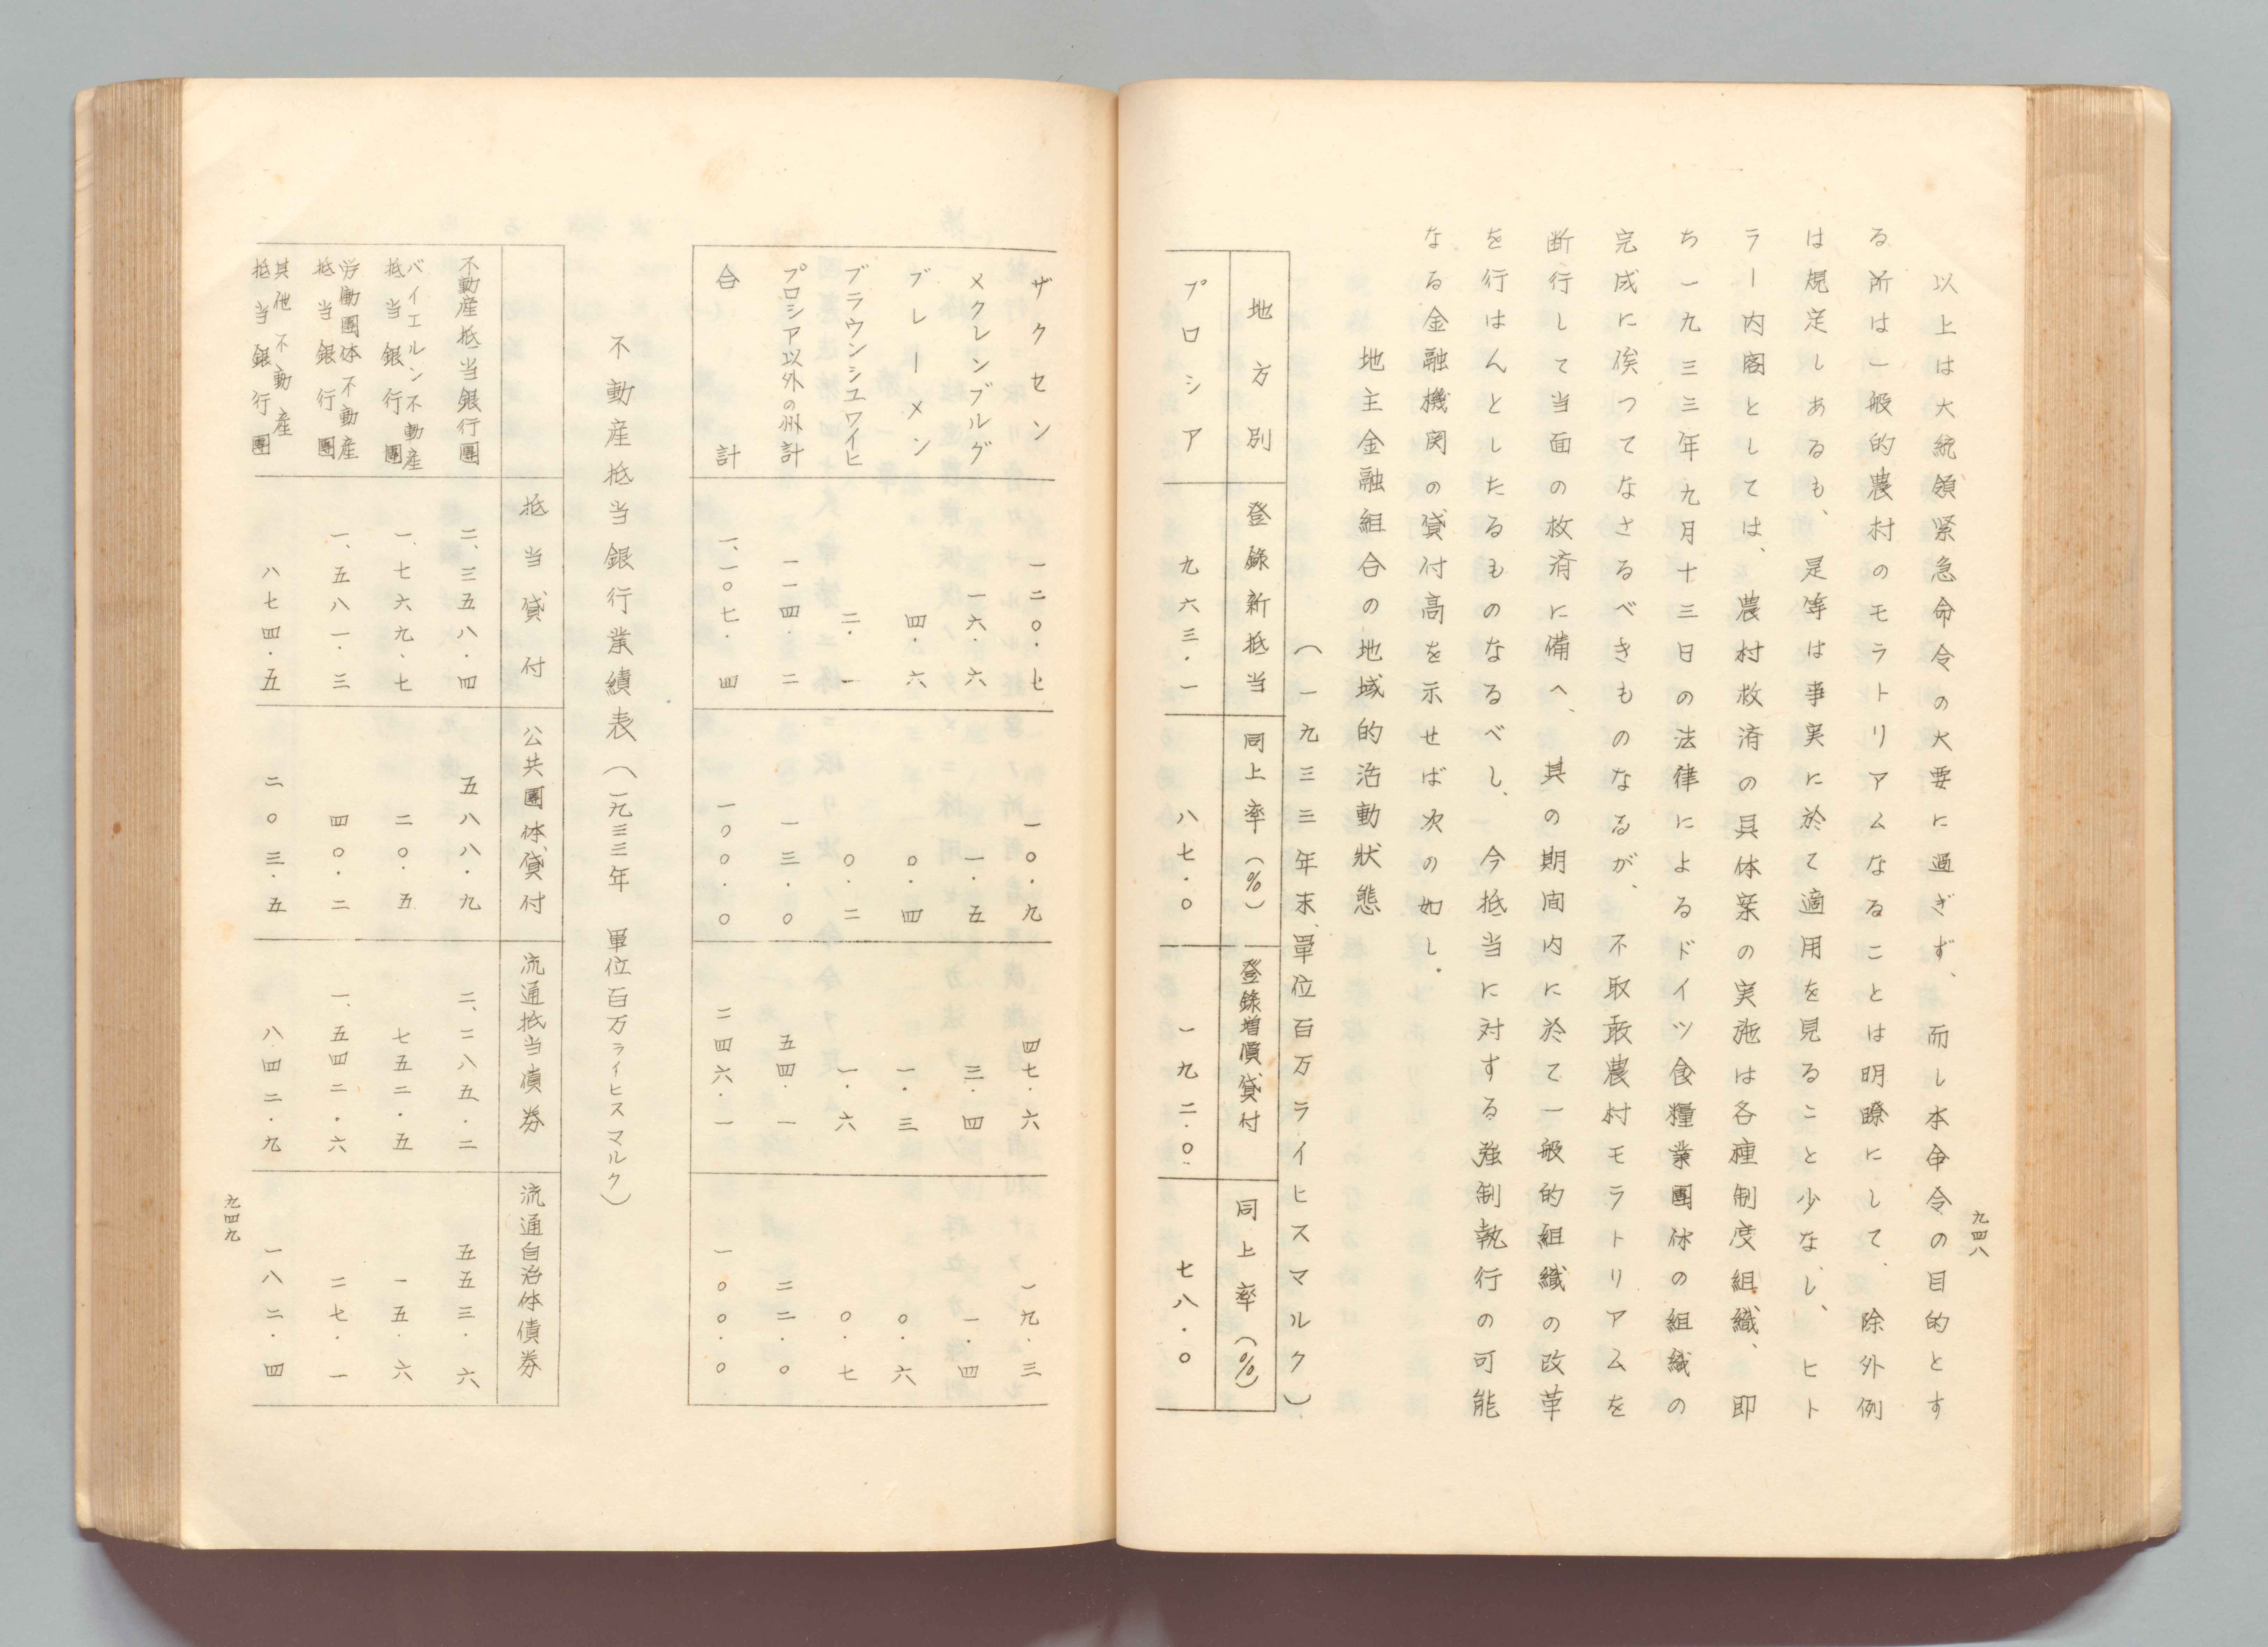 九四八
以上は大統領緊急命令の大要に過ぎず、而し本命令の目的とす
る所は一般的農村のモラトリアムなることは明瞭にして、除外例
は規定しあるも、是等は事実に於て適用を見ること少なし、ヒト
ラー内閣としては、農村救済の具体案の実施は各種制度組織、即
ち一九三三年九月十三日の法律によるドイツ食糧業團体の組織の
完成に俟つてなさるべきものなるが、不取敢農村モラトリアムを
断行して当面の救済に備へ、其の期間内に於て一般的組織の改革
を行はんとしたるものなるべし、今抵当に対する強制執行の可能
なる金融機関の貸付高を示せば次の如し.
地主金融組合の地域的活動狀態
(一九三三年末、單位百万ライヒスマルク)
地方別 登錄新抵当 同上率(%) 登錄増債貸付 同上率(%)
プロシア 九六三.一 八七.〇 一九二.〇 七八.〇
ザクセン 一二〇.七 一〇.九 四七.六 一九.三
メクレンブルグ 一六.六 一.五 三.四 一.四
ブレーメン 四.六 〇.四 一.三 〇.六
ブラウンシユワイヒ 二.一 〇.二 一.六 〇.七
プロシア以外の州計 一一四.二 一三.〇 五四.一 二二.〇
合計 一、一〇七.四 一〇〇.〇 二四六.一 一〇〇.〇
不動産抵当銀行業績表(一九三三年 單位百万ライヒスマルク)
抵当貸付 公共團体貸付 流通抵当債券 流通自治体債券
不動産抵当銀行團 二、三五八.四 五八八.九 二、二八五.二 五五三.六
バイエルン不動産抵当銀行團 一、七六九、七 二〇.五 七五二.五 一五.六
労働團体不動産抵当銀行團 一、五八一.三 四〇.二 一、五四二.六 二七.一
其他不動産抵当銀行團 八七四.五 二〇三.五 八四二.九 一八二.四
九四九